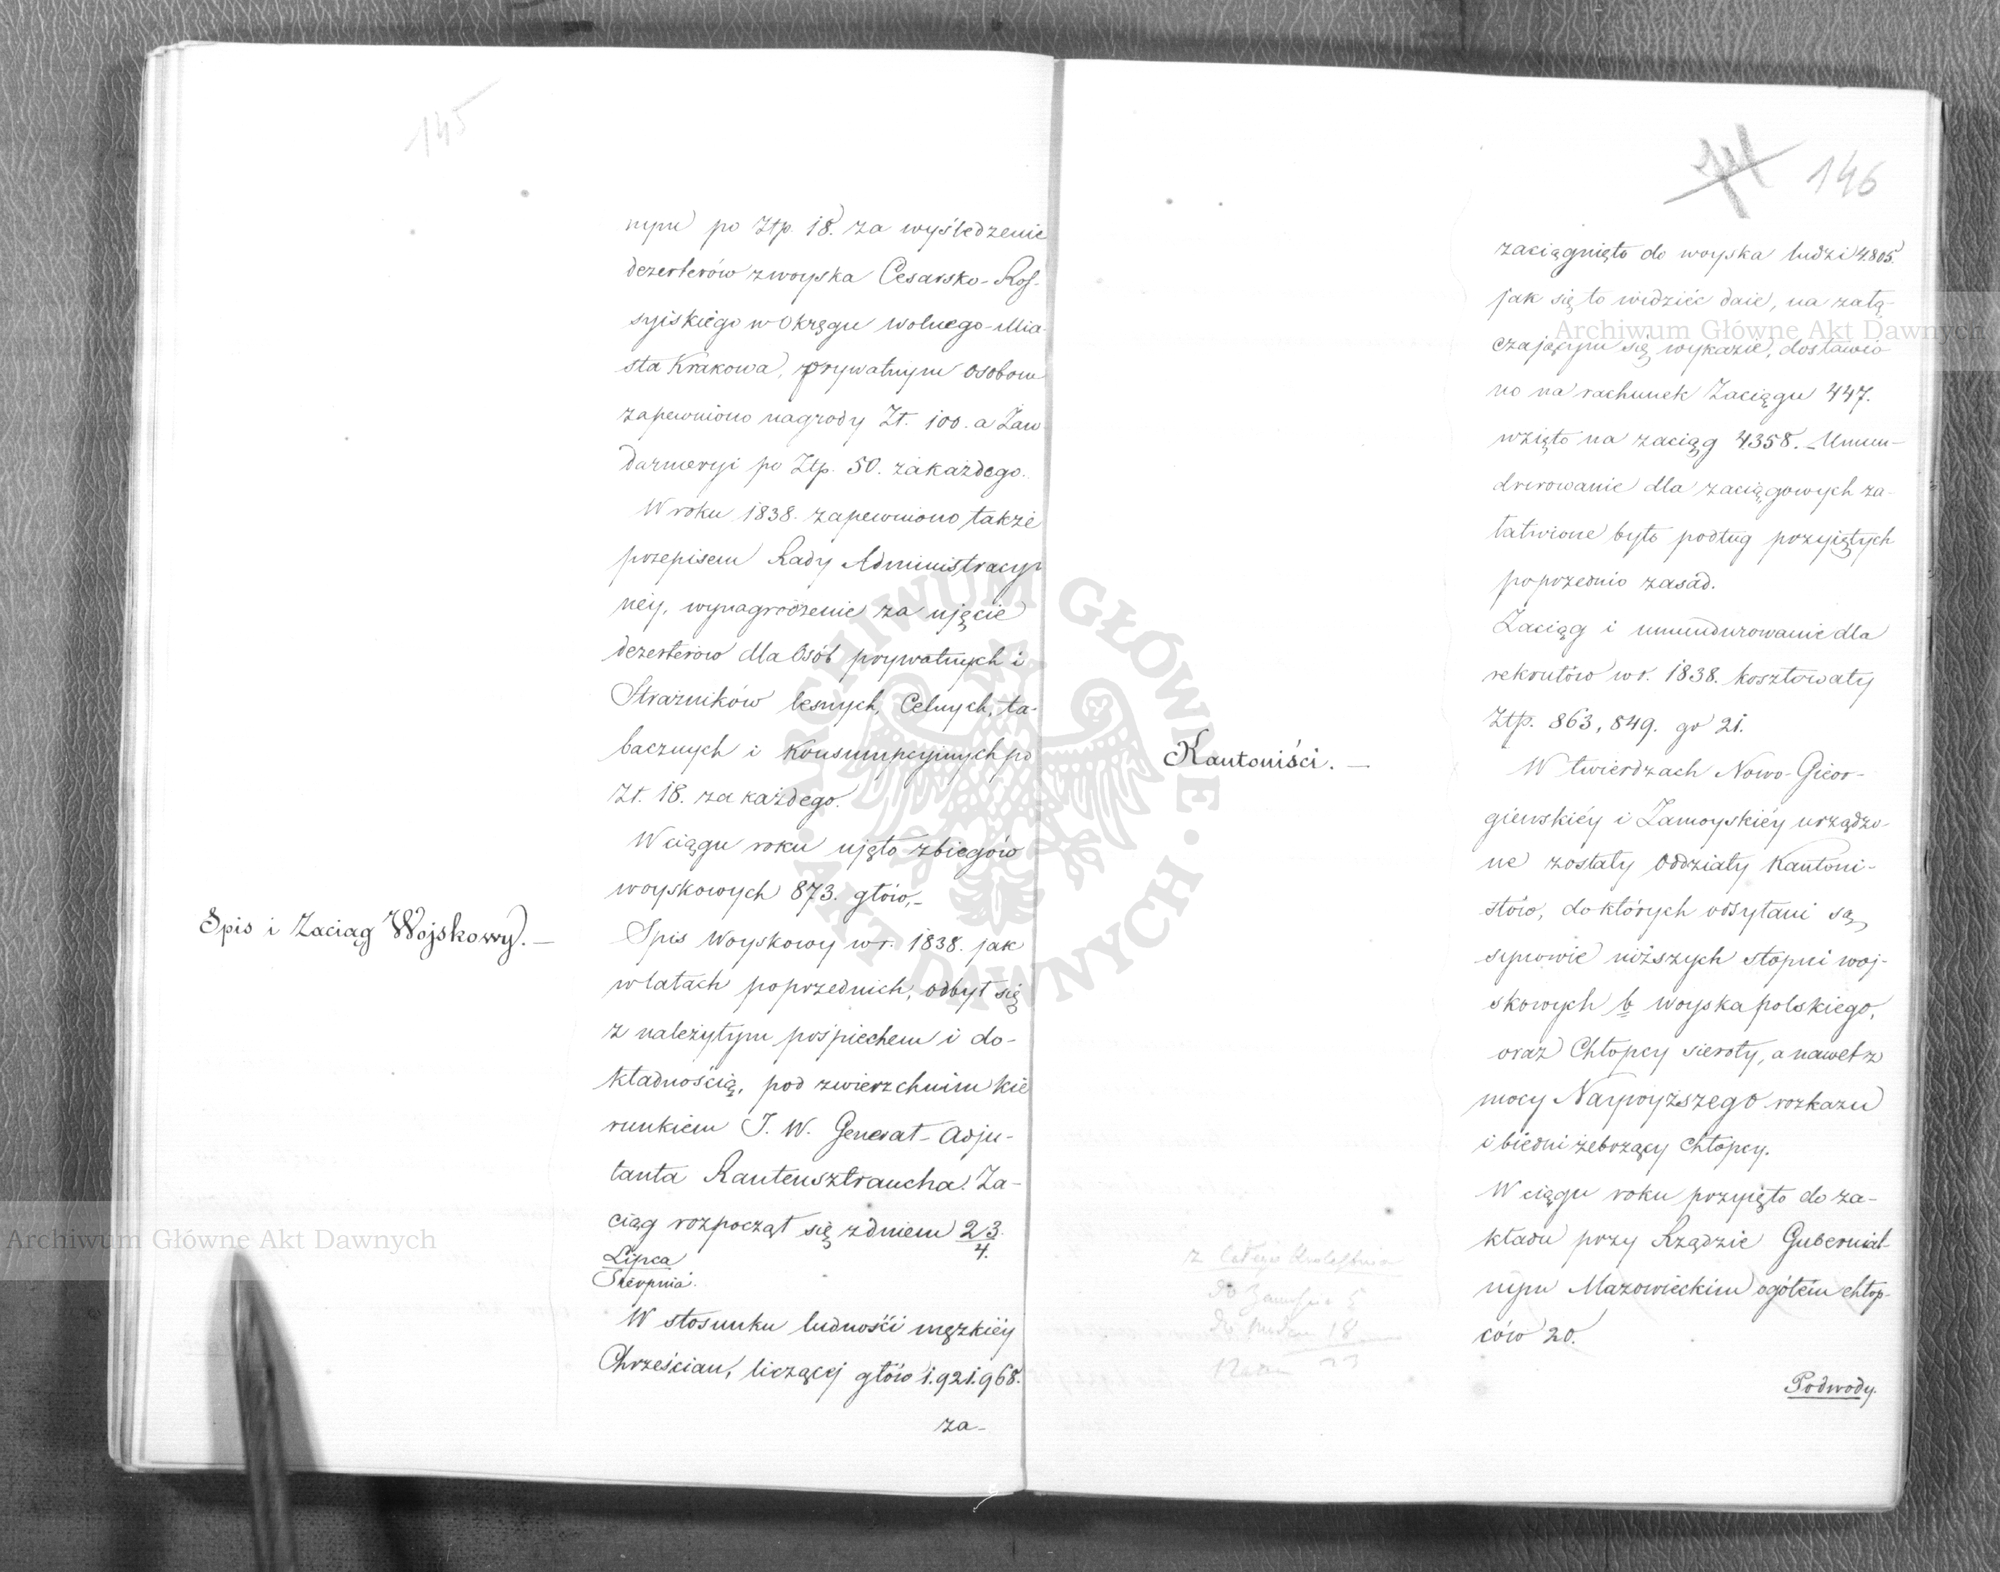 145
nym po Złp. 18. za wyśledzenie
dezerterów z woyska Cesarsko-Ros-
syiskiego w Okręgu wolnego-Mia-
sta Krakowa, prywatnym osobom
zapewniono nagrody Zł. 100. a Żan
darmeryi po Złp. 50. za każdego.
W roku 1838. zapewniono także
przepisem Rady Administracyi
néy, wynagrodzenie za ujęcie
dezerterów dla Osób prywatnych i
Strażników lesnych, Celnych, ta-
bacznych i Konsumpcyinych po
Zł. 18. za każdego.
W ciągu roku ujęto zbiegów
woyskowych 873. głów.-
Spis i Zaciąg Wojskowy. —
Spis Woyskowy w r. 1838. jak
w latach poprzednich, odbył się
z należytym pośpiechem i do-
kładnością, pod zwierzchnim kie
runkiem J. W. Generał-Adju-
tanta Rautensztraucha. Za-
ciąg rozpoczął się z dniem 23/4.
Lipca
Sierpnia.
W stosunku ludności męzkiéy
Chrześcian, liczącej głów 1.921.968.
za-
146
zaciągnięto do woyska ludzi 4.805.
jak się to widzieć daie, na załą-
czającym się wykazie, dostawio
no na rachunek Zaciągu 447.
wzięto na zaciąg 4358. - Umun-
durowanie dla zaciągowych za-
łatwione było podług przyiętych
poprzednio zasad.
Zaciąg i umundurowanie dla
rekrutów w r. 1838. kosztowały
Złp. 863,849. gr 21.
Kantoniści. —
W twierdzach Nowo-Gieor-
giewskiéy i Zamoyskiéy urządzo-
ne zostały Oddziały Kantoni-
stów, do których odsyłani są
synowie niższych stopni woj-
skowych b. woyska polskiego,
oraz Chłopcy sieroty, a nawet z
mocy Naywyższego rozkazu
i biedni żebrzący Chłopcy.
W ciągu roku przyięto do za-
kładu przy Rządzie Gubernial-
nym Mazowieckim ogółem chłop-
ców 20.
z całego Królestwa
do Zamościa 5
do 18
Razem 23
Podwody.